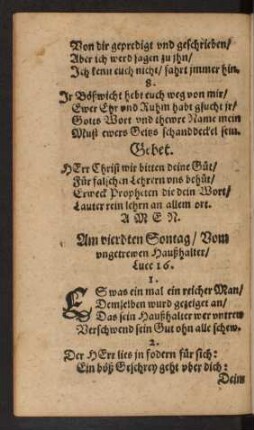 Von dir gepredigt vnd geschrieben/
Aber ich werd sagen zu jhn/
Ich kenn euch nicht/ fahrt jmmer hin.
8.
Jr Bößwicht hebt euch weg von mir/
Ewer Ehr vnd Ruhm habt gsucht jr/
Gotts Wort vnd thewre Name mein
Must ewers Geitzs schanddeckel sein.
Gebet.
HErr Christ wir bitten deine Güt/
Für falschen Lehrern vns behüt/
Erweck Propheten die dein Wort/
Lauter rein lehrn an allem ort.
A M E N.
Am vierdten Sontag/ Vom
vngetrewen Haußhalter/
Luce 16.
1.
ES was ein mal ein reicher Man/
Demselben wurd gezeiget an/
Das sein Haußhalter wer vntrew
Verschwend sein Gut ohn alle schew.
2.
Der HErr lies jn fodern für sich:
Ein böß Geschrey geht vber dich:
Dein